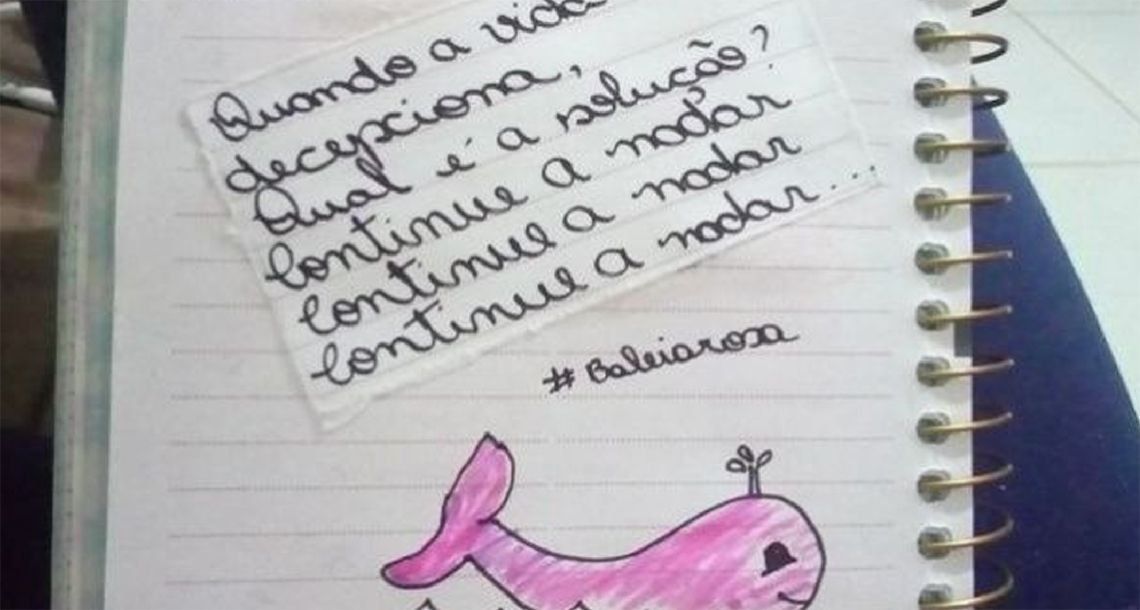 Quando a vida
decepciona,
Qual é a solução?
Continue a nadar
Continue a nadar
Continue a nadar...
#Baleiarosa